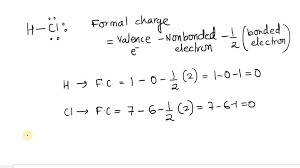 H-Cl: Formal charge
= Valence e⁻ - Nonbonded electron - 1/2 (bonded electron)
H → F.C. = 1 - 0 - 1/2 (2) = 1 - 0 - 1 = 0
Cl → F.C = 7 - 6 - 1/2 (2) = 7 - 6 - 1 = 0